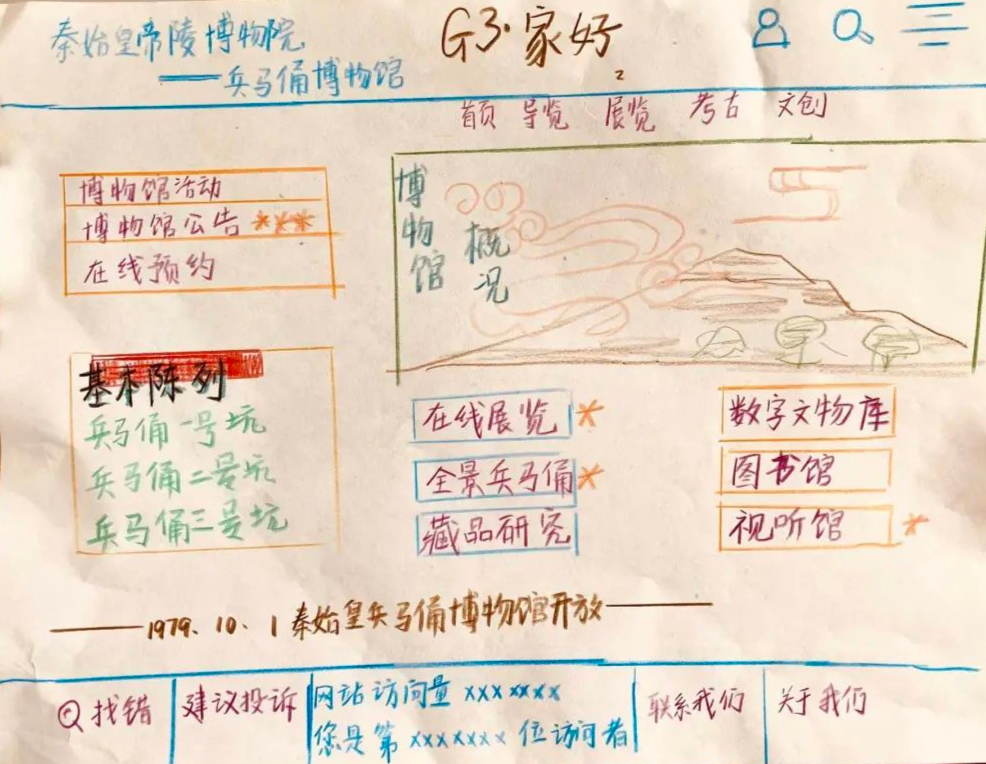 秦始皇帝陵博物院
——兵马俑博物馆
G3·家好
2
首页 导览 展览 考古 文创
博物馆活动
博物馆公告 ***
在线预约
博物馆
概况
基本陈列
兵马俑一号坑
兵马俑二号坑
兵马俑三号坑
在线展览 *
全景兵马俑 *
藏品研究
数字文物库
图书馆
视听馆 *
——1979.10.1秦始皇兵马俑博物馆开放——
找错
建议投诉
网站访问量 xxxxxxx
您是第 xxxxxxx 位访问者
联系我们
关于我们